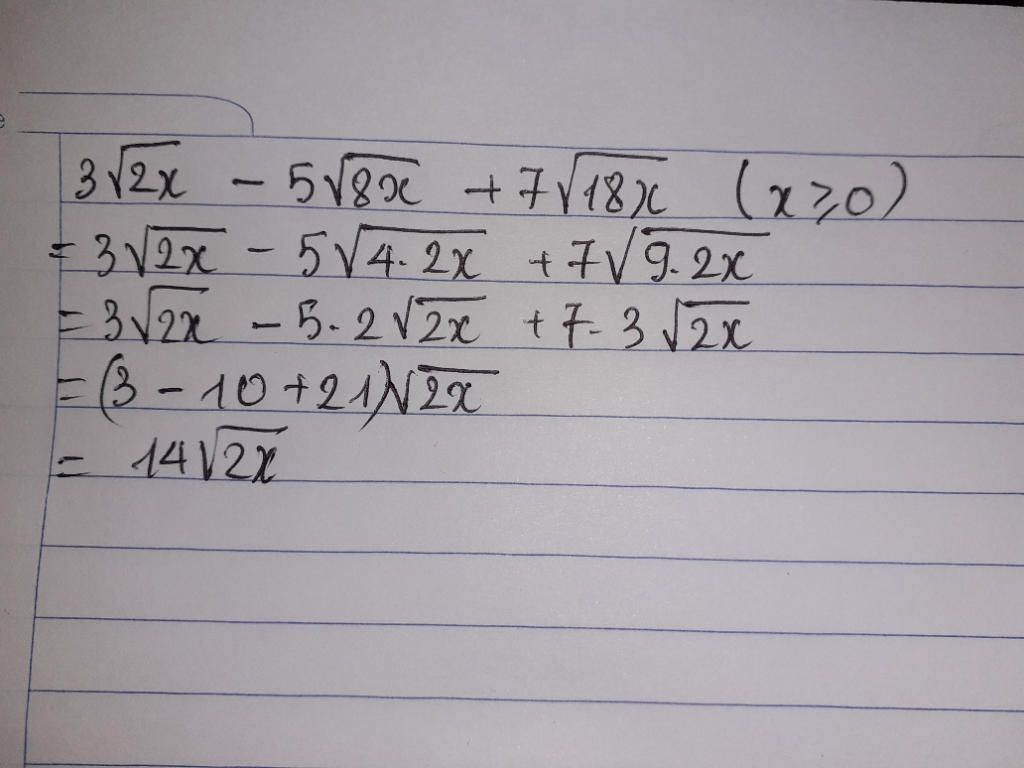 3√2x - 5√8x + 7√18x (x ⩾ 0)
= 3√2x - 5√4.2x + 7√9.2x
= 3√2x - 5.2√2x + 7.3√2x
= (3 - 10 + 21)√2x
= 14√2x